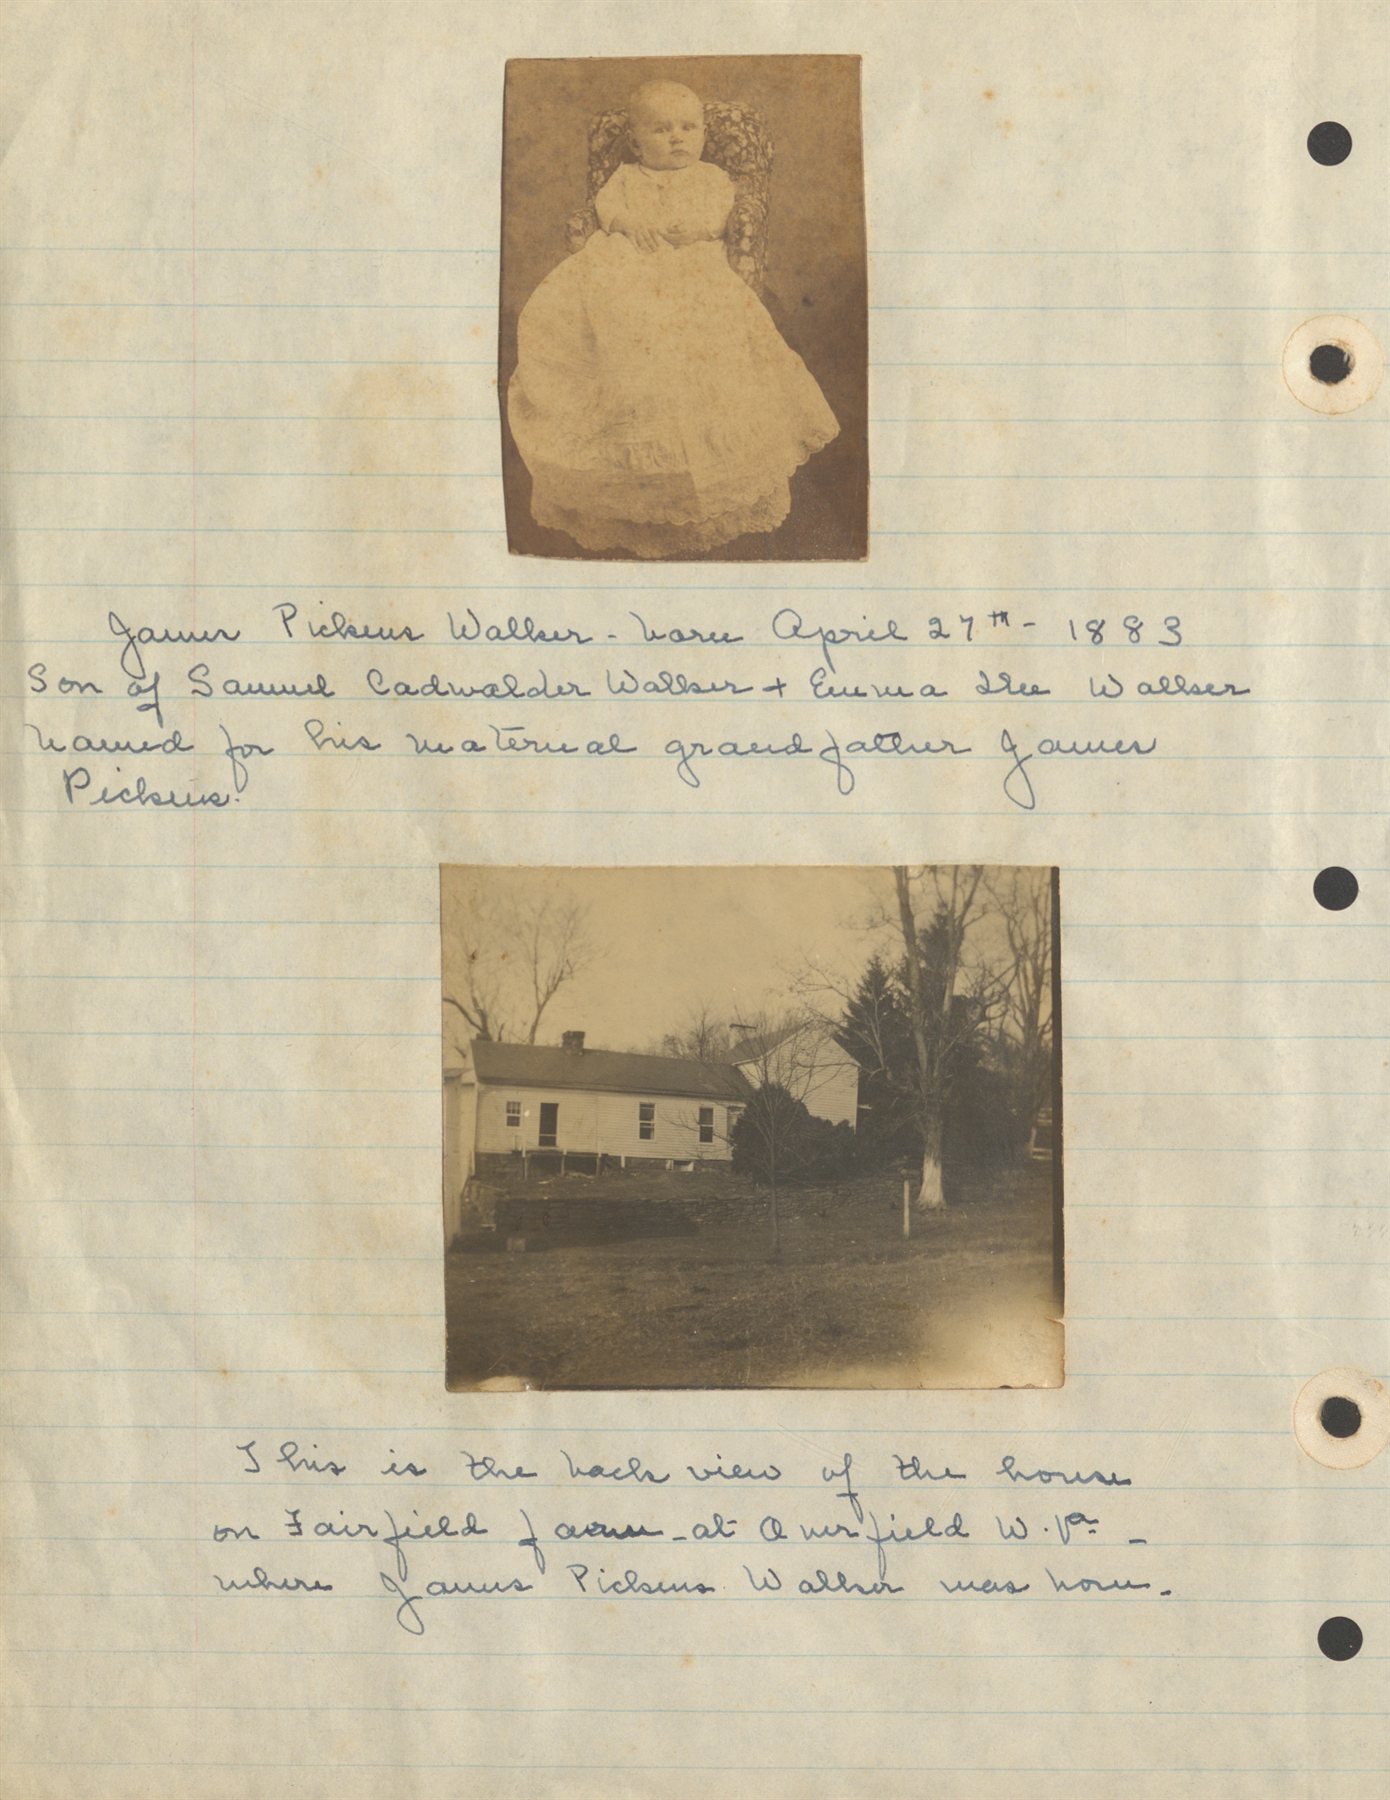 James Pickens Walker - born April 27th - 1883
Son of Samuel Cadwalder Walker + Emma Walker
named for his maternal grandfather James
Pickens.
This is the back view of the house
on Fairfield farm - at Overfield W. Va -
where James Pickens Walker was born.